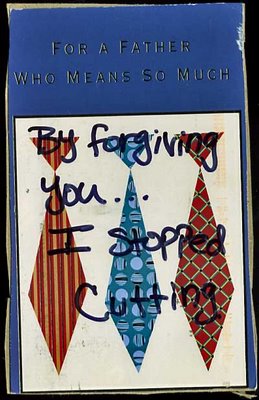 FOR A FATHER
WHO MEANS SO MUCH
By forgiving
you...
I stopped
Cutting